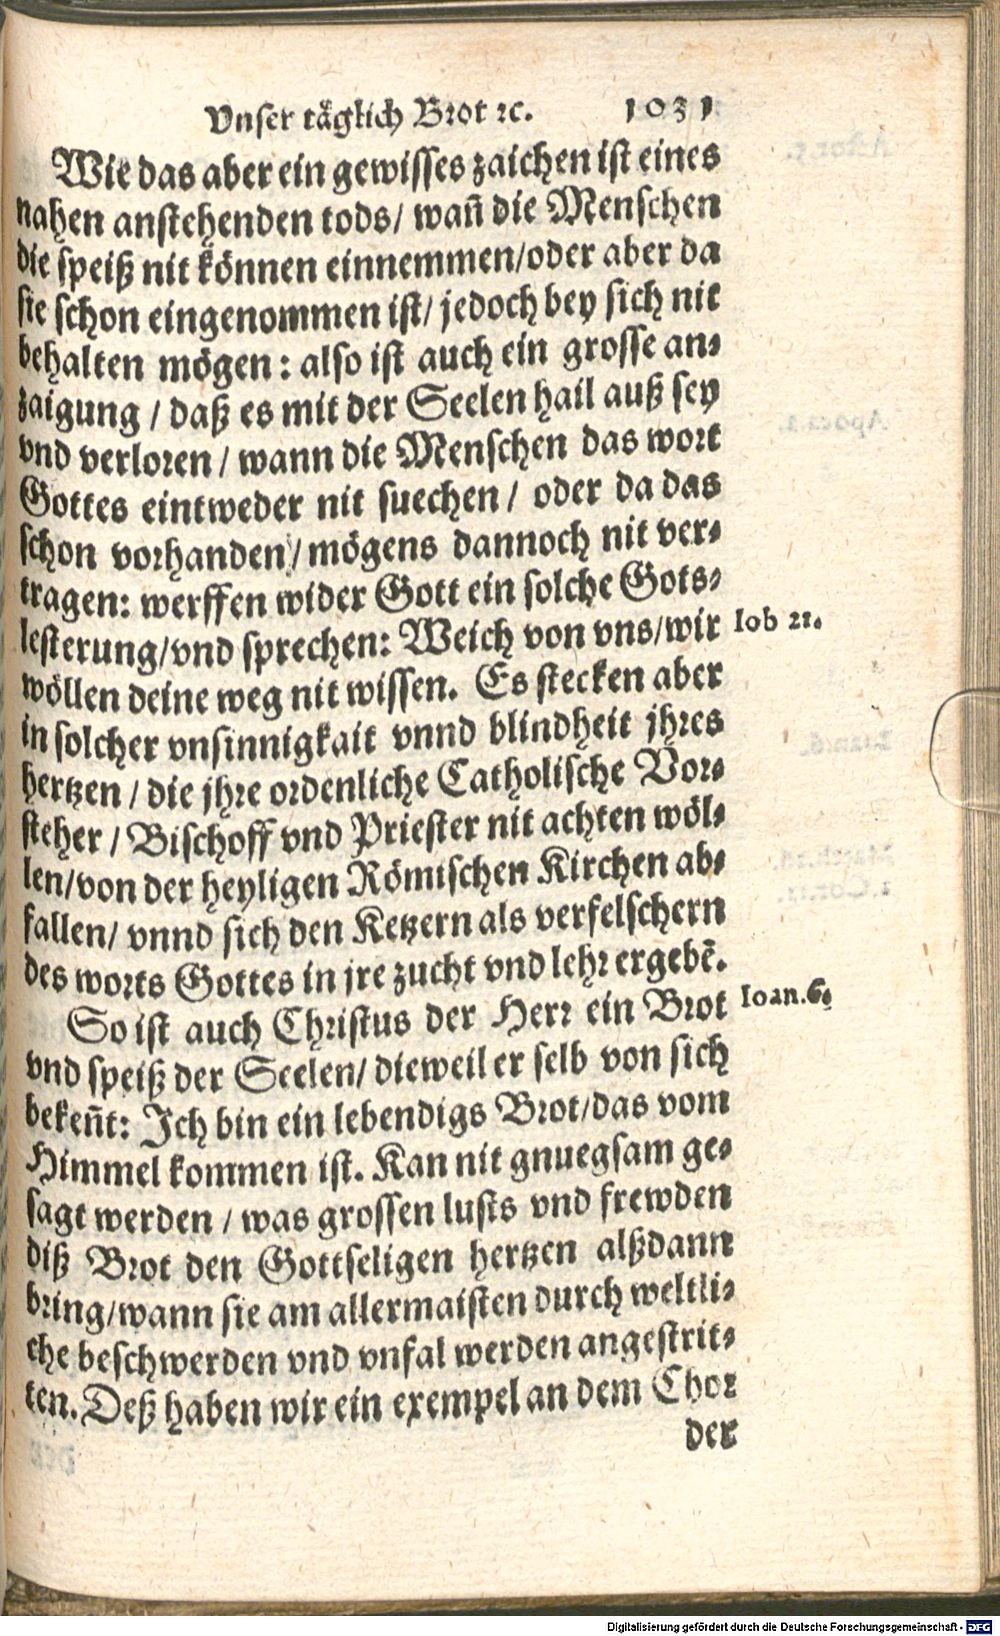 Vnser täglich Brot ꝛc. 1031
Wie das aber ein gewisses zaichen ist eines
nahen anstehenden tods/ wañ die Menschen
die speiß nit können einnemmen/oder aber da
sie schon eingenommen ist/ jedoch bey sich nit
behalten mögen: also ist auch ein grosse an-
zaigung / daß es mit der Seelen hail auß sey
vnd verloren / wann die Menschen das wort
Gottes eintweder nit suechen / oder da das
schon vorhanden / mögens dannoch nit ver-
tragen: werffen wider Gott ein solche Gots-
lesterung/vnd sprechen: Weich von vns/wir Iob 21.
wöllen deine weg nit wissen. Es stecken aber
in solcher vnsinnigkait vnnd blindheit jhres
hertzen / die jhre ordenliche Catholische Vor-
steher / Bischoff vnd Priester nit achten wöl-
len/von der heyligen Römischen Kirchen ab-
fallen/ vnnd sich den Ketzern als verfelschern
des worts Gottes in jre zucht vnd lehr ergebẽ.
So ist auch Christus der Herr ein Brot Ioan.6.
vnd speiß der Seelen/ dieweil er selb von sich
bekeñt: Ich bin ein lebendigs Brot/das vom
Himmel kommen ist. Kan nit gnuegsam ge-
sagt werden / was grossen lusts vnd frewden
diß Brot den Gottseligen hertzen alßdann
bring/wann sie am allermaisten durch weltli-
che beschwerden vnd vnfal werden angestrit-
ten. Deß haben wir ein exempel an dem Chor
der
Digitalisierung gefördert durch die Deutsche Forschungsgemeinschaft - DFG